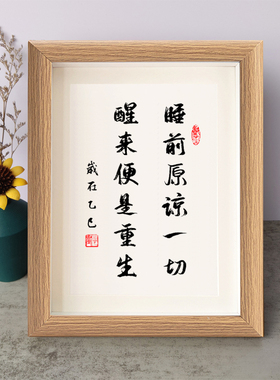 睡前原谅一切
醒来便是重生
岁在乙巳